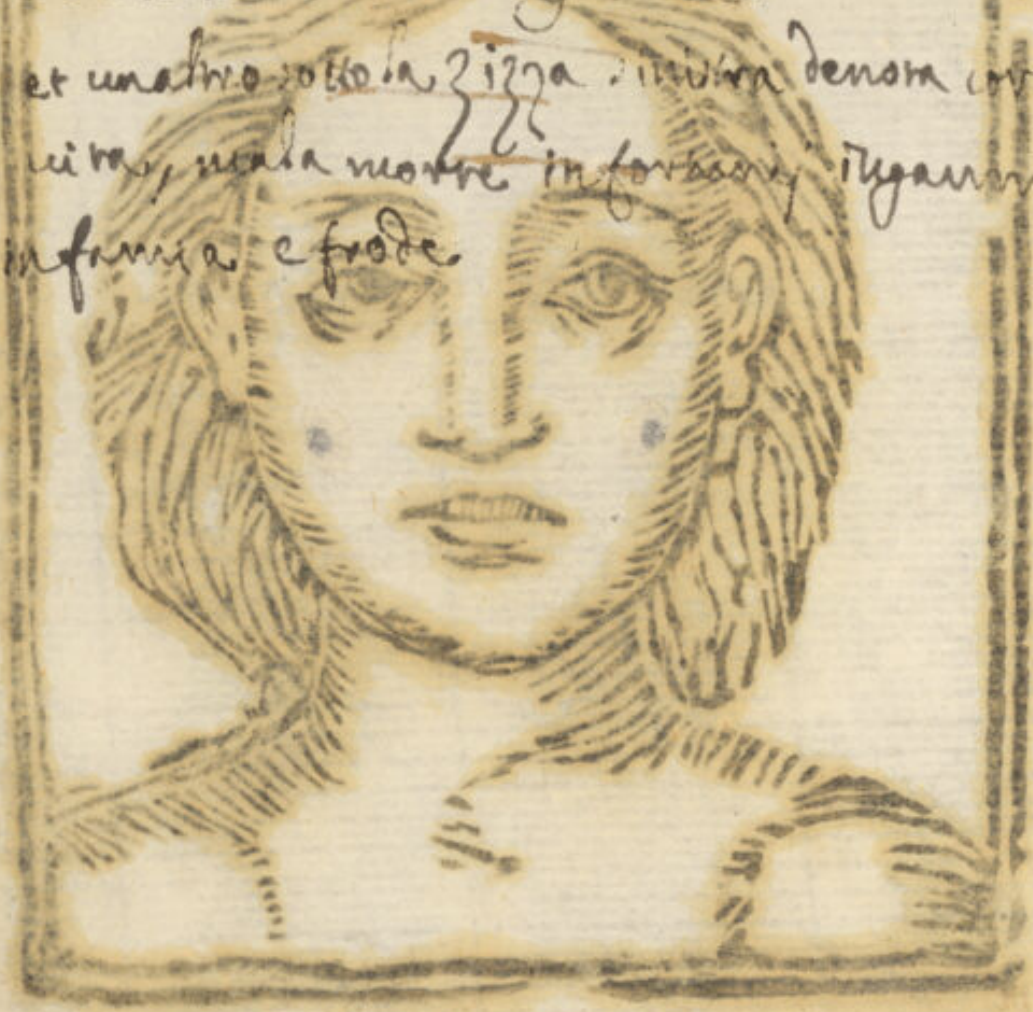 et unaltro sotto la zizza sinistra denota cor
vita, mala morte infortunij inganni
infamia e frode